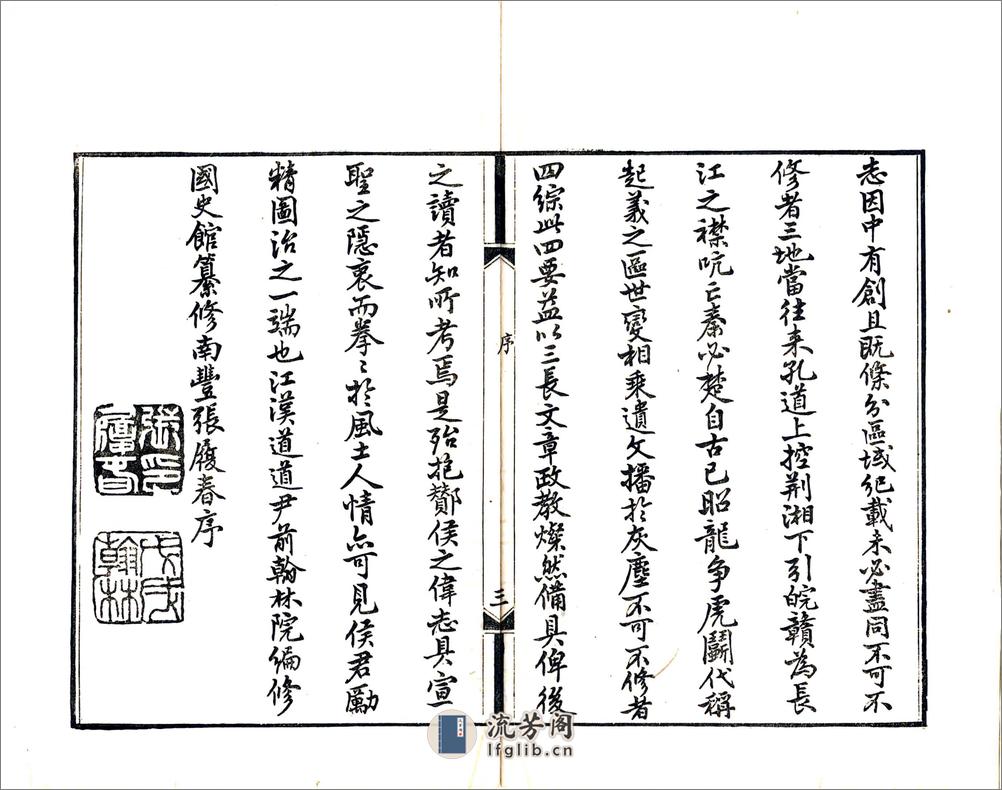 志因中有創且既條分區域紀載未必盡同不可不
修者三地當往来孔道上控荆湘下引皖贛為長
江之襟吭亡秦必楚自古已昭龍争虎鬭代稱
起義之區世變相乘遺文播於灰塵不可不修者
四綜此四要益以三長文章政教燦然備具俾後
序
三
之讀者知所考焉是殆抱鄼侯之偉志具宣
聖之隱衷而拳〻於風土人情亦可見侯君勵
精圖治之一端也江漢道道尹前翰林院編修
國史館纂修南豐張履春序
張印履春
戊戌翰林
流芳阁
lfglib.cn